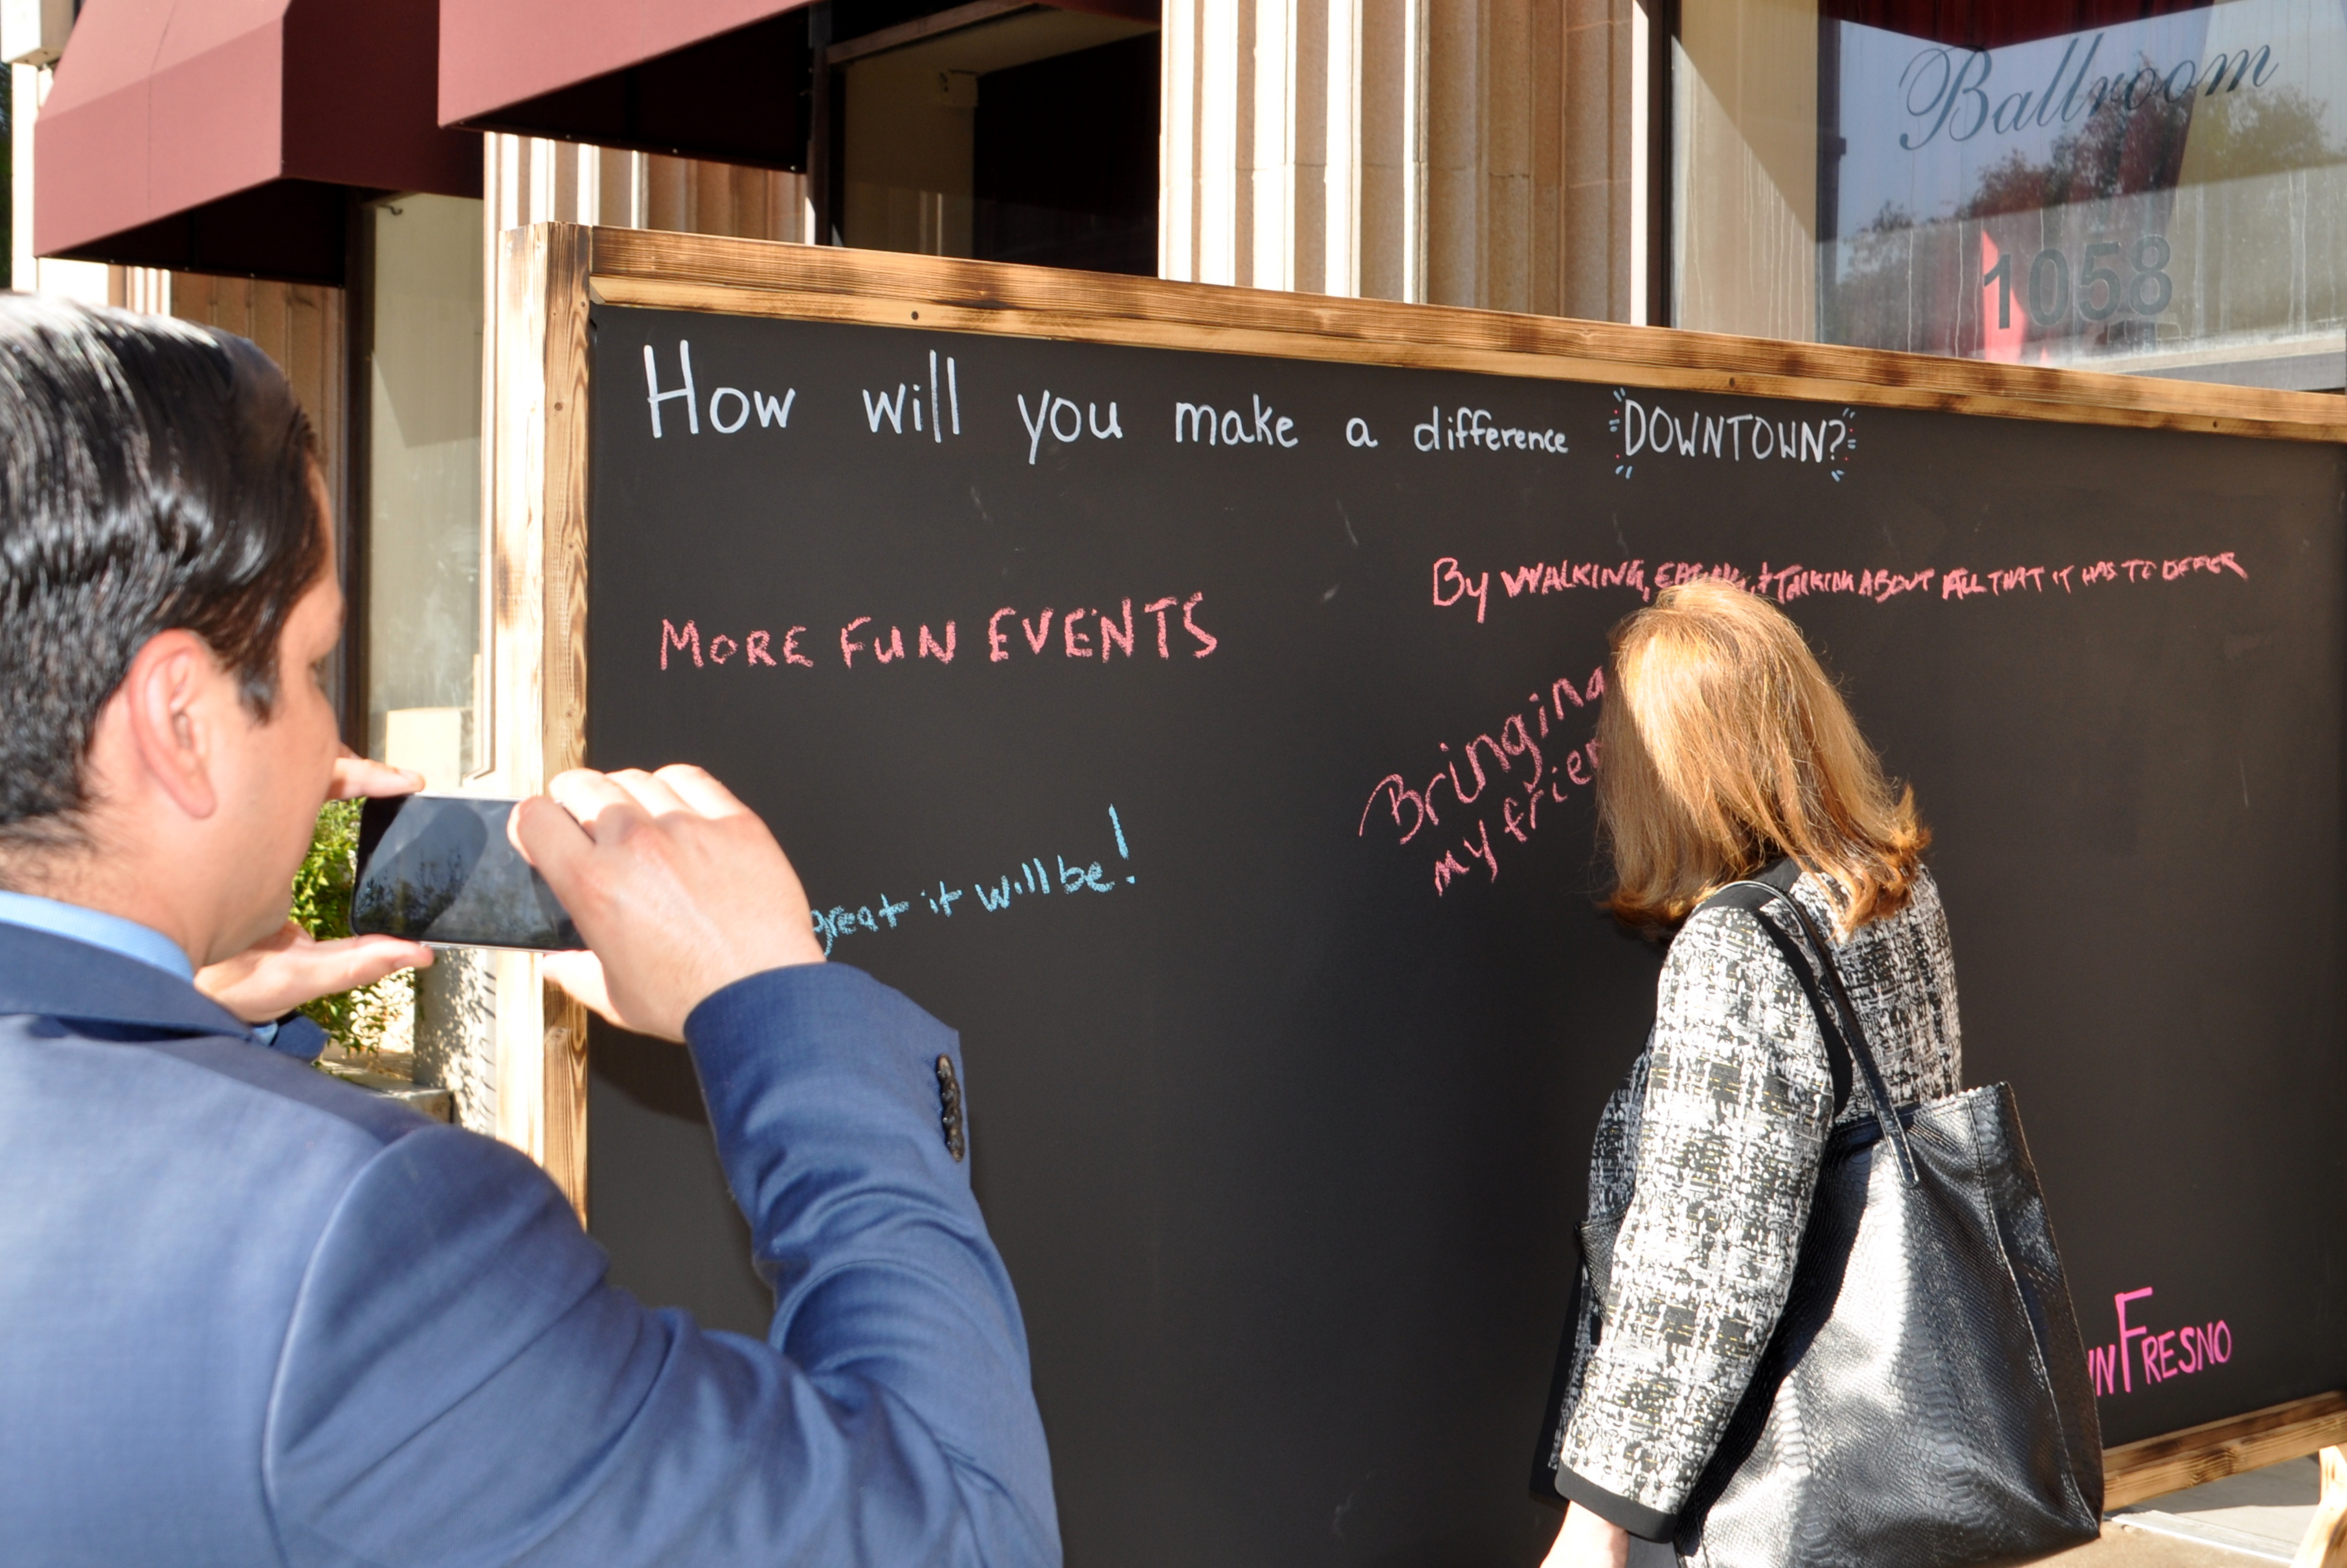 Ballroom
1058
How will you make a difference DOWNTOWN?
By WALKING, EATING, + TALKING ABOUT ALL THAT IT HAS TO OFFER
MORE FUN EVENTS
Bringing
my
great it will be!
FRESNO